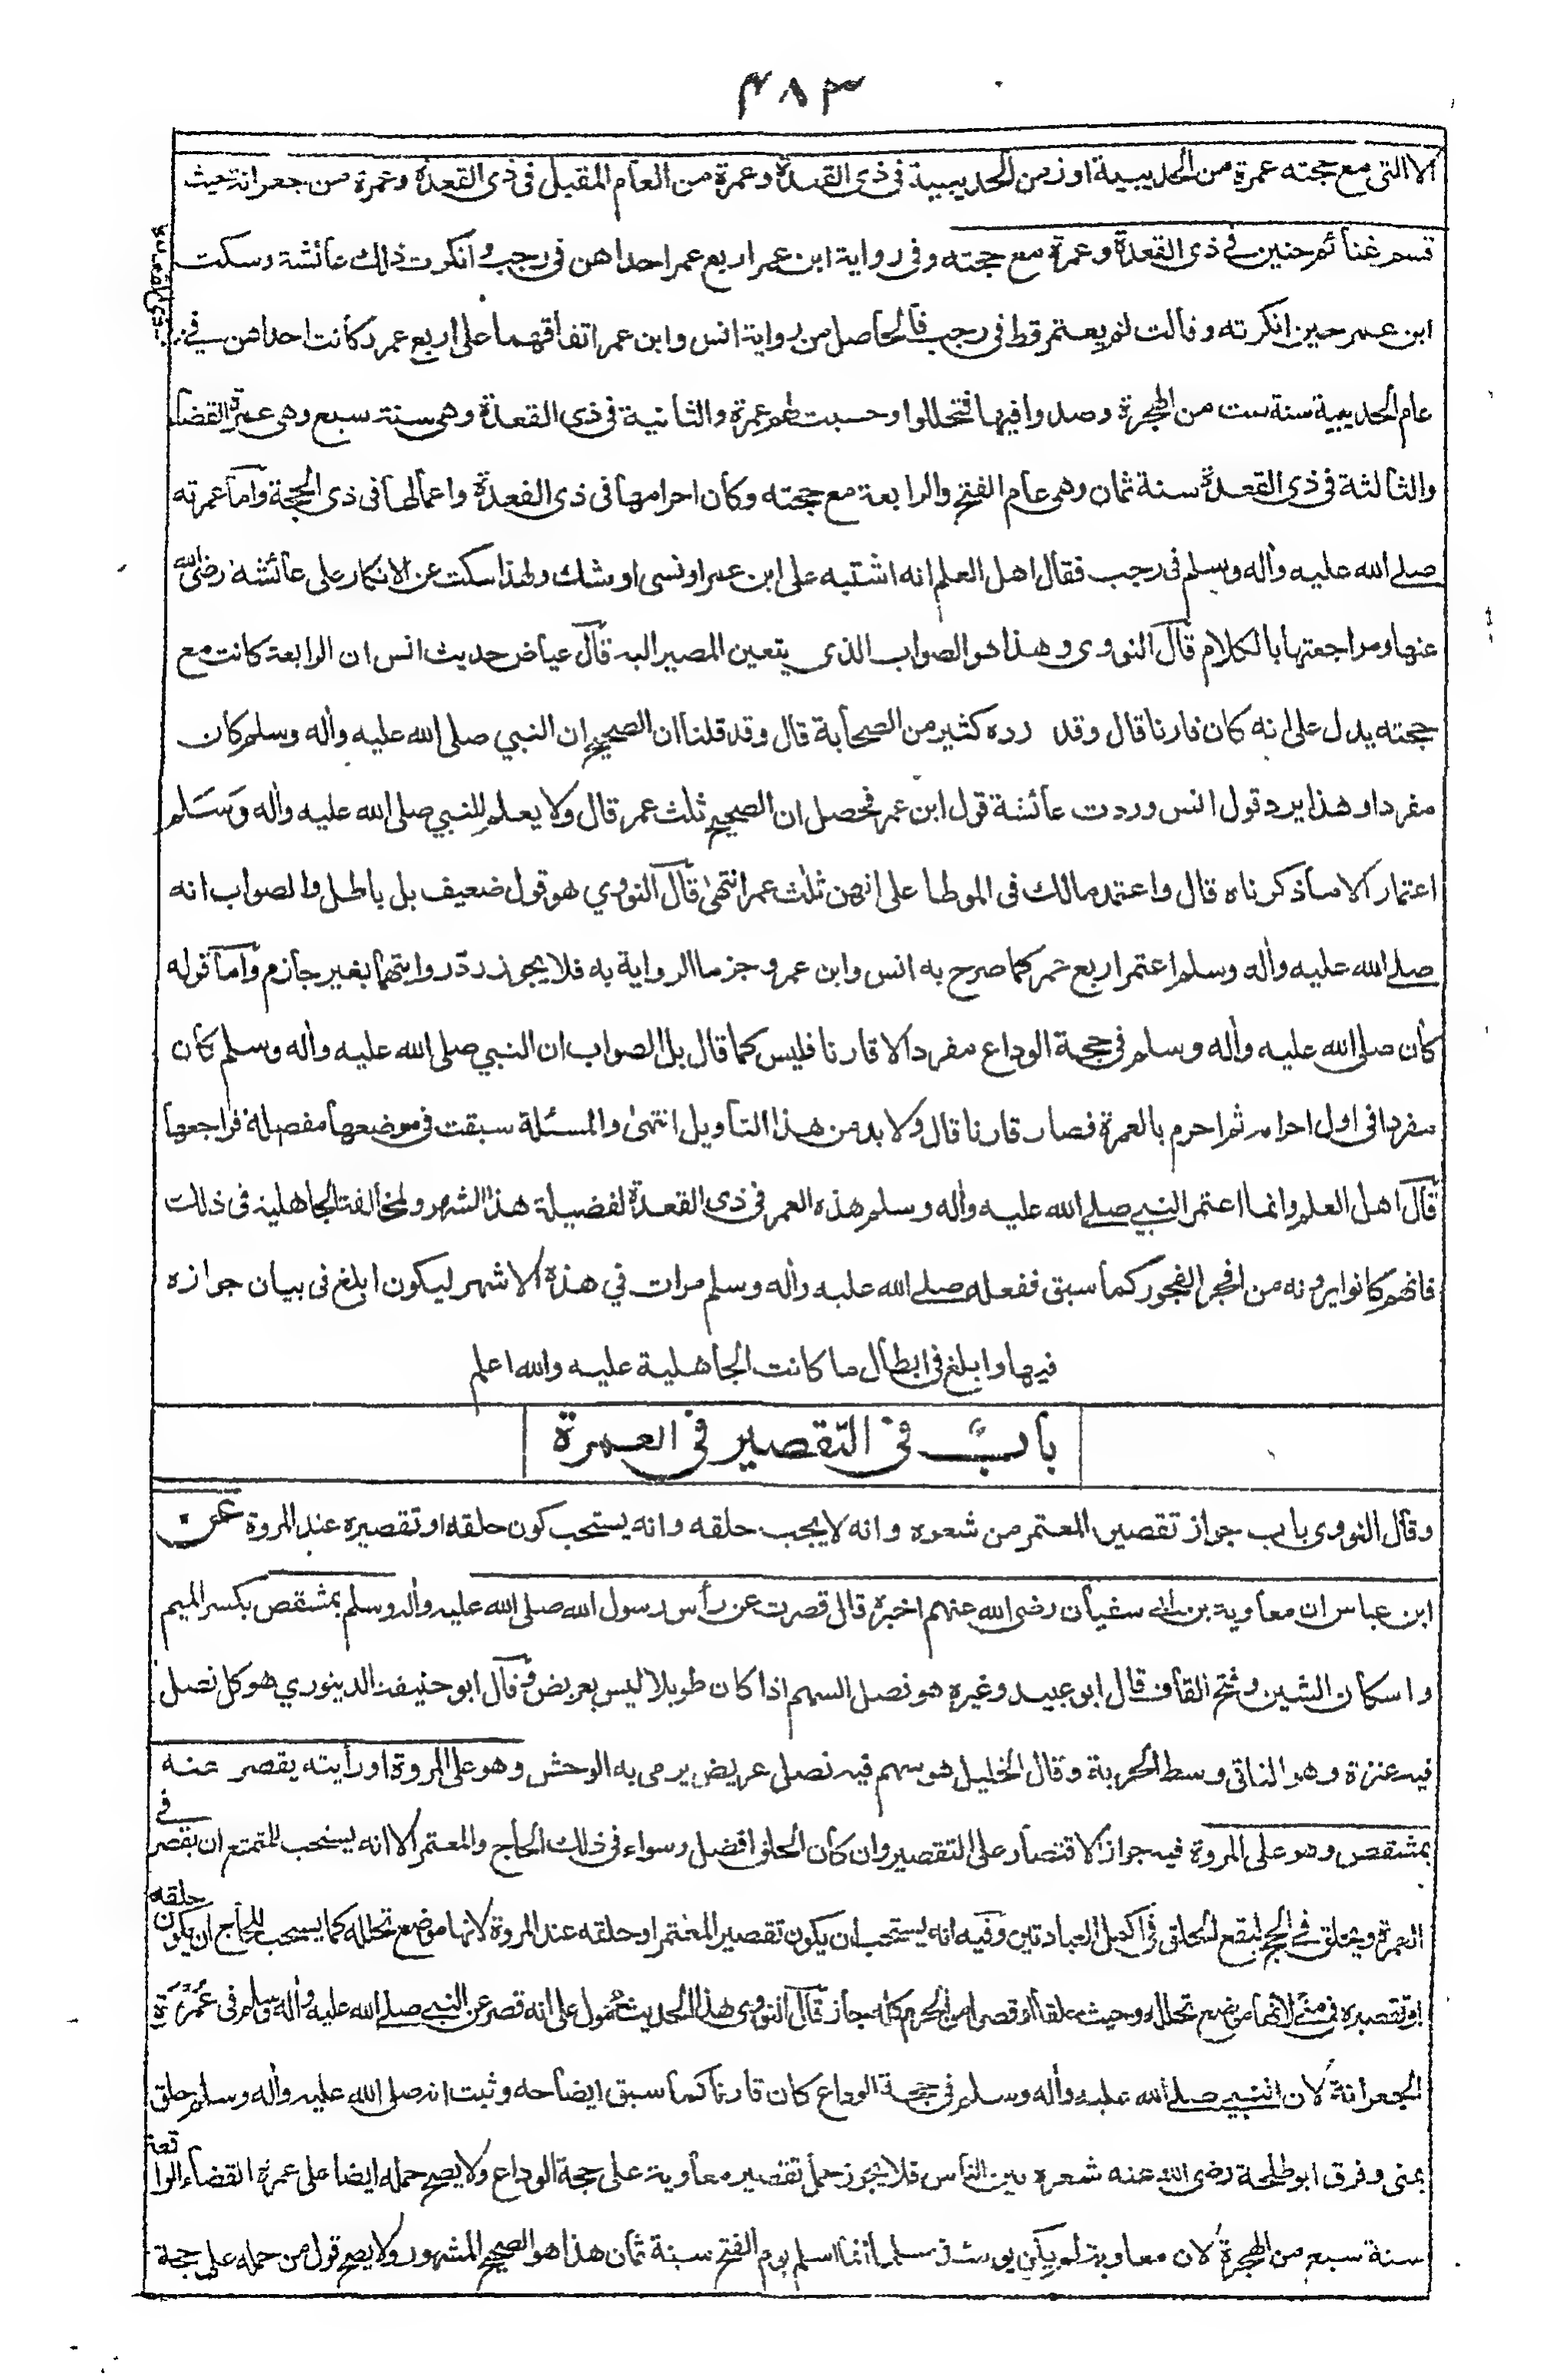 ٤٨٣
الا التى مع حجته عمرة من الحديبية او زمن الحديبية فى ذى القعدة وعمرة من العام المقبل فى ذى القعدة وعمرة من جعرانة حيث
قسم غنائم حنين في ذى القعدة وعمرة مع حجته وفى رواية ابن عمر اربع عمر احداهن فى رجب وانكرت ذلك عائشة وسكت
ابن عمر حين انكرته وقالت لم يعتمر قط فى رجب فالحاصل من رواية انس وابن عمر اتفاقهما على اربع عمر وكانت احداهن في
ذى القعدة
عام الحديبية سنة ست من الهجرة وصدوا فيها فتحللوا وحسبت لهم عمرة والثانية فى ذى القعدة وهى سنة سبع وهى عمرة القضاء
والثالثة فى ذى القعدة سنة ثمان وهى عام الفتح والرابعة مع حجته وكان احرامها فى ذى القعدة واعمالها فى ذى الحجة واما عمرته
صلے الله عليه واله وسلم فى رجب فقال اهل العلم انه اشتبه على ابن عمر او نسى او شك ولهذا سكت عن الانكار على عائشة رضى الله
عنها ومراجعتها بالكلام قال النووى وهذا هو الصواب الذى يتعين المصير اليه قال عياض حديث انس ان الرابعة كانت مع
حجته يدل على انه كان قارنا قال وقد رده كثير من الصحابة قال وقد قلنا ان الصحيح ان النبي صلى الله عليه واله وسلم كان
مفردا وهذا يرد قول انس وردت عائشة قول ابن عمر فحصل ان الصحيح ثلث عمر قال ولا يعلم للنبي صلى الله عليه واله وسلم
اعتمار الا ما ذكرناه قال واعتمد مالك فى الموطا على انهن ثلث عمر انتهى قال النووي هو قول ضعيف بل باطل والصواب انه
صلے الله عليه واله وسلم اعتمر اربع عمر كما صرح به انس وابن عمر وجزما الرواية به فلا يجوز رد روايتهما بغير جازم واما قوله
كان صلى الله عليه واله وسلم فى حجة الوداع مفردا لا قارنا فليس كما قال بل الصواب ان النبي صلى الله عليه واله وسلم كان
مفردا فى اول احرامه ثم احرم بالعمرة فصار قارنا قال ولا بد من هذا التاويل انتهى والمسئلة سبقت فى موضعها مفصلة فراجعها
قال اهل العلم وانما اعتمر النبي صلے الله عليه واله وسلم هذه العمر فى ذى القعدة لفضيلة هذا الشهر ولمخالفة الجاهلية فى ذلك
فانهم كانوا يرونه من افجر الفجور كما سبق ففعله صلے الله عليه واله وسلم مرات في هذه الاشهر ليكون ابلغ فى بيان جوازه
فيها وابلغ فى ابطال ما كانت الجاهلية عليه والله اعلم
باب فى التقصير فى العمرة
وقال النووى باب جواز تقصير المعتمر من شعره وانه لا يجب حلقه وانه يستحب كون حلقه او تقصيره عند المروة عن
ابن عباس ان معاوية بن ابى سفيان رضى الله عنهم اخبره قال قصرت عن رأس رسول الله صلى الله عليه واله وسلم بمشقص بكسر الميم
واسكان الشين وفتح القاف قال ابو عبيد وغيره هو نصل السهم اذا كان طويلا ليس بعريض وقال ابو حنيفة الدينوري هو كل نصل
فيه عنزة وهو الناتى وسط الحربة وقال الخليل هو سهم فيه نصل عريض يرمى به الوحش وهو على المروة او رأيته يقصر عنه
بمشقص وهو على المروة فيه جواز الاقتصار على التقصير وان كان الحلق افضل وسواء فى ذلك الحاج والمعتمر الا انه يستحب للمتمتع ان يقصر في
العمرة ويحلق في الحج ليقع الحلق فى اكمل العبادتين وفيه انه يستحب ان يكون تقصير المعتمر او حلقه عند المروة لانها موضع تحلله كما يستحب للحاج ان يكون حلقه
او تقصيره فى منى لانها موضع تحلله وحيث حلقا او قصرا من الحرم كله جاز قال النووى هذا الحديث محمول على انه قصر عن النبي صلے الله عليه واله وسلم فى عمرة
الجعرانة لان النبي صلے الله عليه واله وسلم فى حجة الوداع كان قارنا كما سبق ايضاحه وثبت انه صلى الله عليه واله وسلم حلق
بمنى وفرق ابو طلحة رضى الله عنه شعره بين الناس فلا يجوز حمل تقصير معاوية على حجة الوداع ولا يصح حمله ايضا على عمرة القضاء الواقعة
سنة سبع من الهجرة لان معاوية لم يكن يومئذ مسلما انما اسلم يوم الفتح سنة ثمان هذا هو الصحيح المشهور ولا يصح قول من حمله على حجة